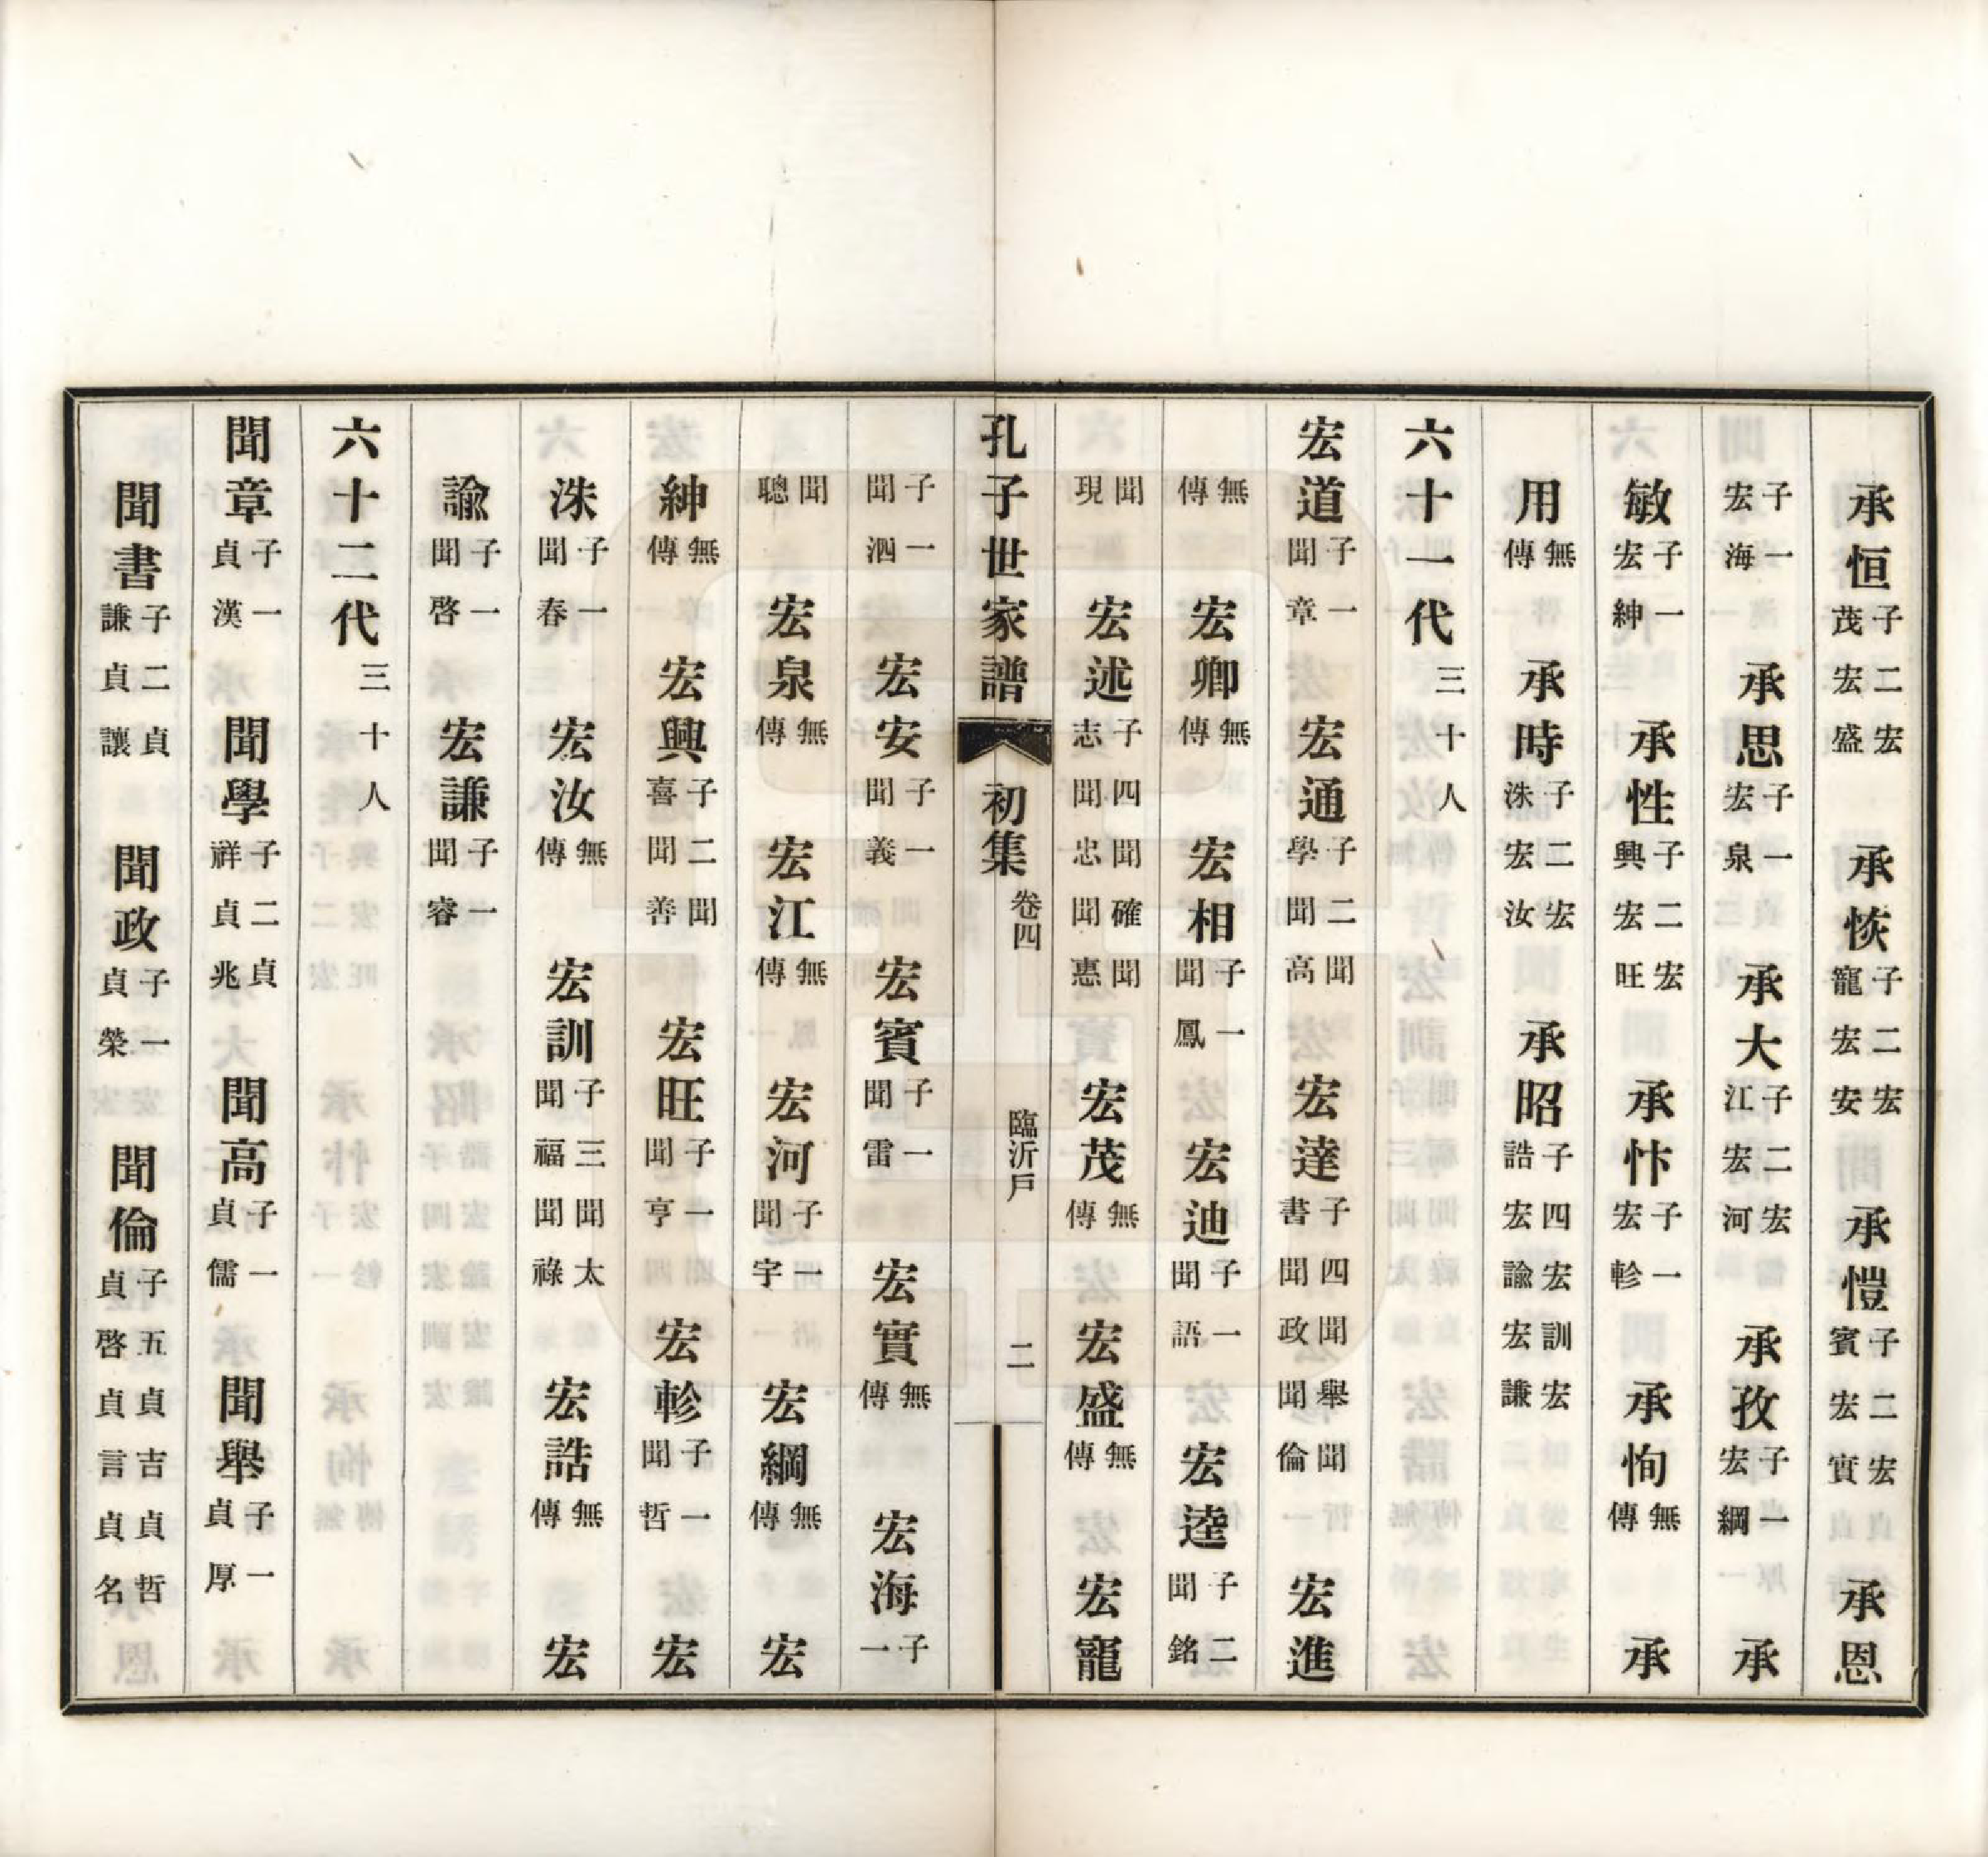 承恒子二宏茂宏盛　承恢子二宏寵宏安　承愷子二宏賓宏實　承恩
子一宏海　承思子一宏泉　承大子二宏江宏河　承孜子一宏綱　承
敏子一宏紳　承性子二宏興宏旺　承忭子一宏軫　承恂無傳　承
用無傳　承時子二宏洙宏汝　承昭子四宏訓宏誥宏諭宏謙
六十一代三十人
宏道子一聞章　宏通子二聞學聞高　宏達子四聞舉聞書聞政聞倫　宏進
無傳　宏卿無傳　宏相子一聞鳳　宏迪子一聞語　宏逵子二聞銘
聞現　宏述子四聞確聞志聞忠聞惠　宏茂無傳　宏盛無傳　宏寵
孔子世家譜　初集　卷四　臨沂戶　二
子一聞泗　宏安子一聞義　宏賓子一聞雷　宏實無傳　宏海子一
聞聰　宏泉無傳　宏江無傳　宏河子一聞宇　宏綱無傳　宏
紳無傳　宏興子二聞喜聞善　宏旺子一聞亨　宏軫子一聞哲　宏
洙子一聞春　宏汝無傳　宏訓子三聞太聞福聞祿　宏誥無傳　宏
諭子一聞啓　宏謙子一聞睿
六十二代三十人
聞章子一貞漢　聞學子二貞祥貞兆　聞高子一貞儒　聞舉子一貞厚
聞書子二貞謙貞讓　聞政子一貞榮　聞倫子五貞吉貞哲貞啓貞言貞名